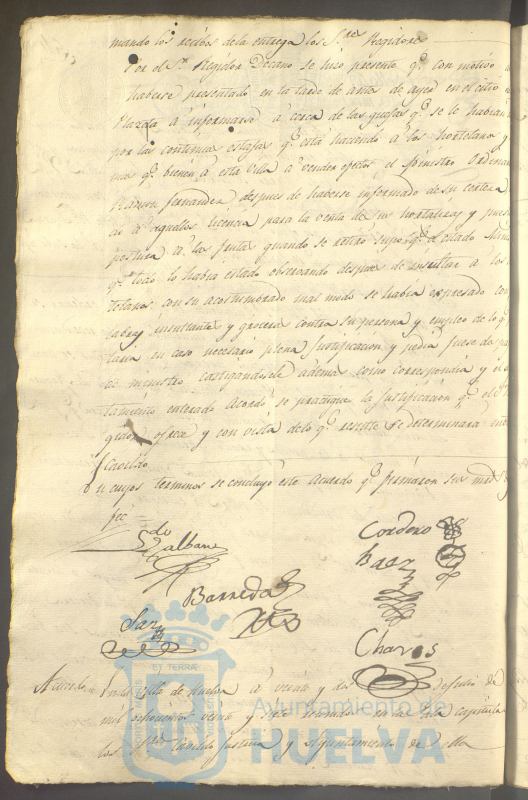 mando los recibos de la entrega los S.res Regidore
Por el S.r Regidor Decano se hiso presente q.e con motivo
haberse presentado en la tarde de antes de ayer en el citio
Plazeta a informarse a cerca de las quejas q.e se le habian
por las continuas estafas q.e está haciendo a los hortelanos y
mas q.e bienen a esta Villa a vender efectos el Ministro Ordenan
Ramon Fernandez, despues de haberse informado de su certeza
a aquellos licencia para la venta de sus hortalizas y puesto
postura a las frutas quando se retiro supo q.e el citado Min
q.e todo lo habia estado observando despues de insultar a los
telanos con su acostumbrado mal modo se habia expresado con
labras insultantes y groceras contra su persona y empleo de lo q.e
taria en caso necesario plena justificacion y pedia fuese des
de ministro castigandosele ademas como correspondia y el
tamiento enterado Acordó se practique la justificacion q.e el
gidor ofrece y con vista de lo q.e resulte se determinará
Cavildo
En cuyos terminos se concluyó este Acuerdo q.e firmaron sus mrds
fee =
Cordero
Galbane
Baez
Barreda
Saz
Chaves
PORTUS MARIS ET TERRÆ CUSTODIA
Acuerdo En la Villa de Huelva a veinte y dos de Julio de
mil ochocientos veinte y seis en la Sala capitular
los S.res Cavildo justicia y Ayuntamiento de ella
Ayuntamiento de
HUELVA